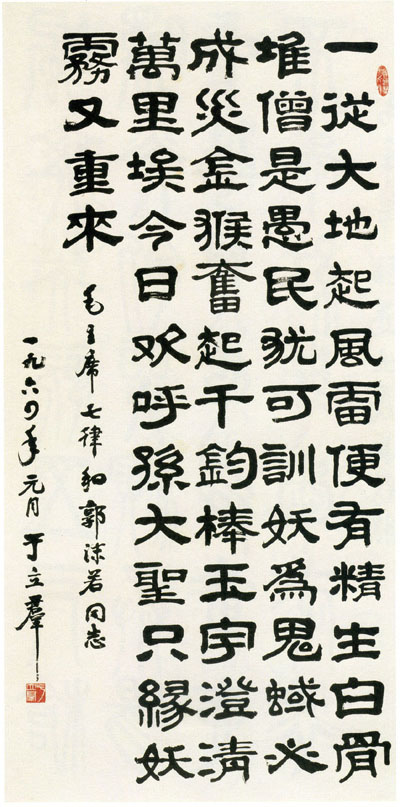 一從大地起風雷便有精生白骨
堆僧是愚民犹可訓妖爲鬼蜮必
成災金猴奮起千鈞棒玉宇澄清
萬里埃今日欢呼孫大聖只緣妖
霧又重來
毛主席七律和郭沫若同志
一九六四年元月于立群